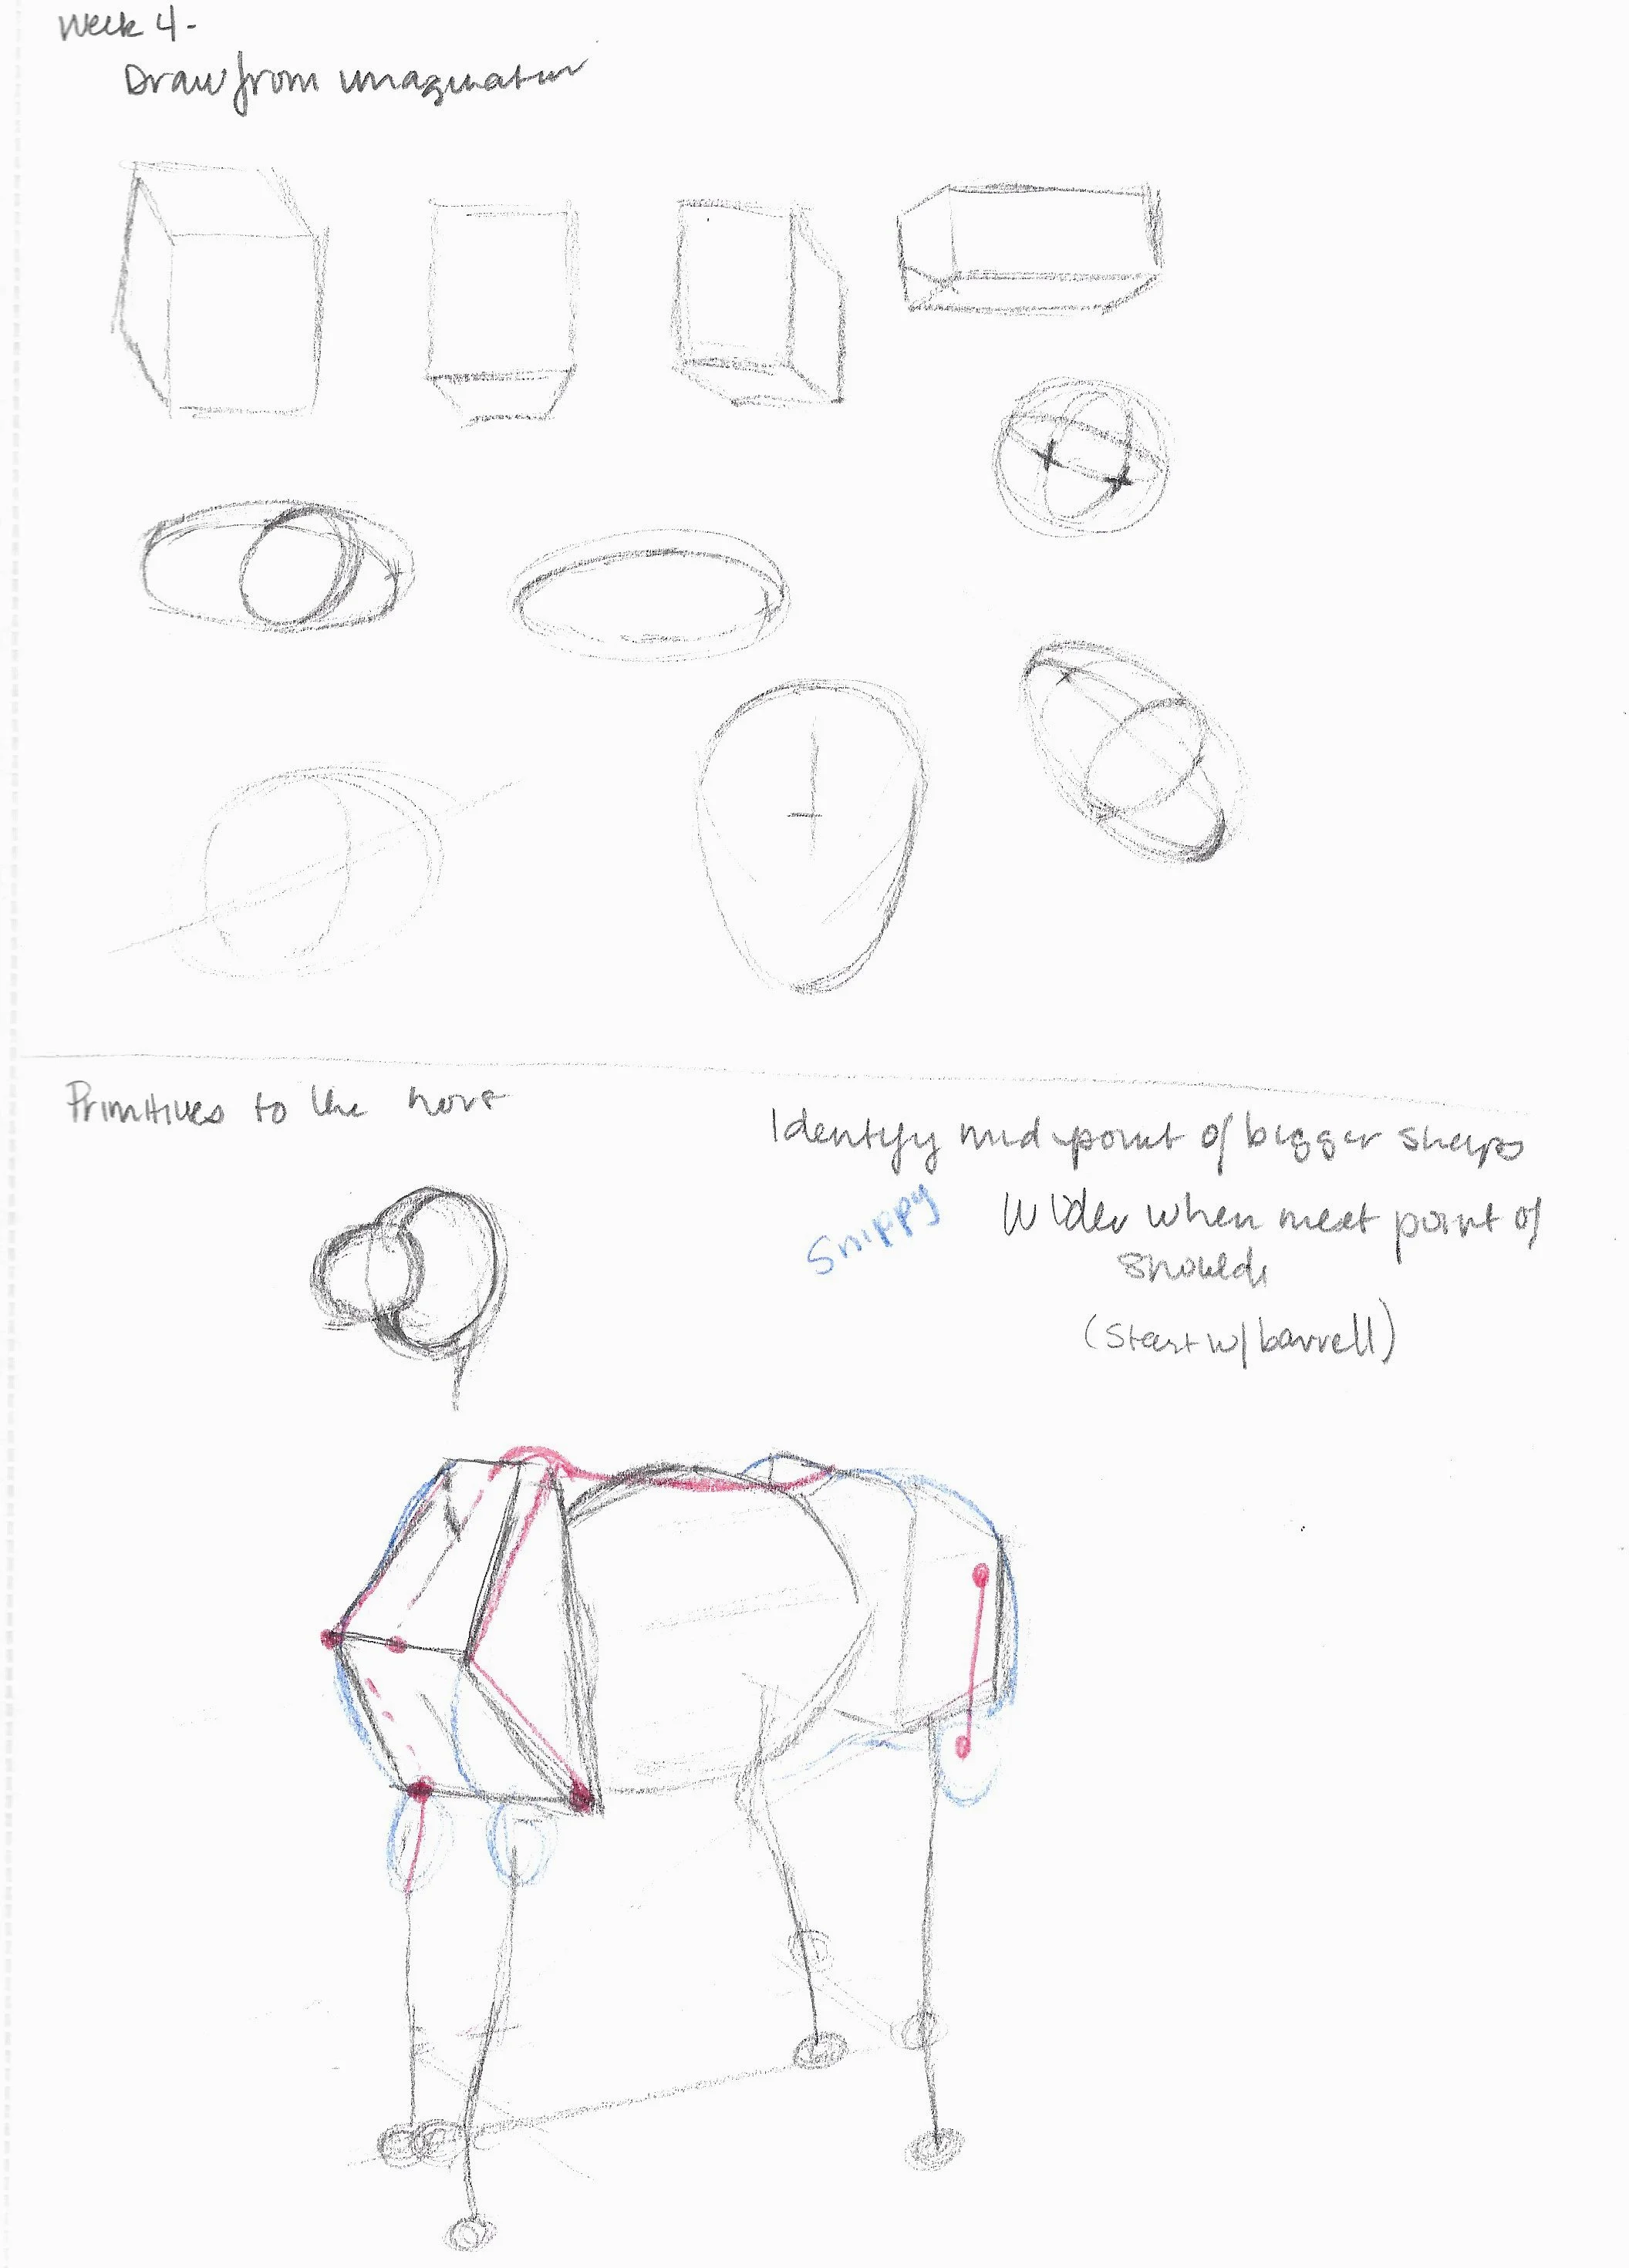 Week 4-
Draw from imagination
Primitives to the horse
Identify mid-point of bigger shapes
Snippy
Wider when meet point of
shoulder
(start w/ barrell)